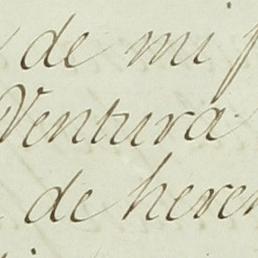 de mi
Ventura
de heren